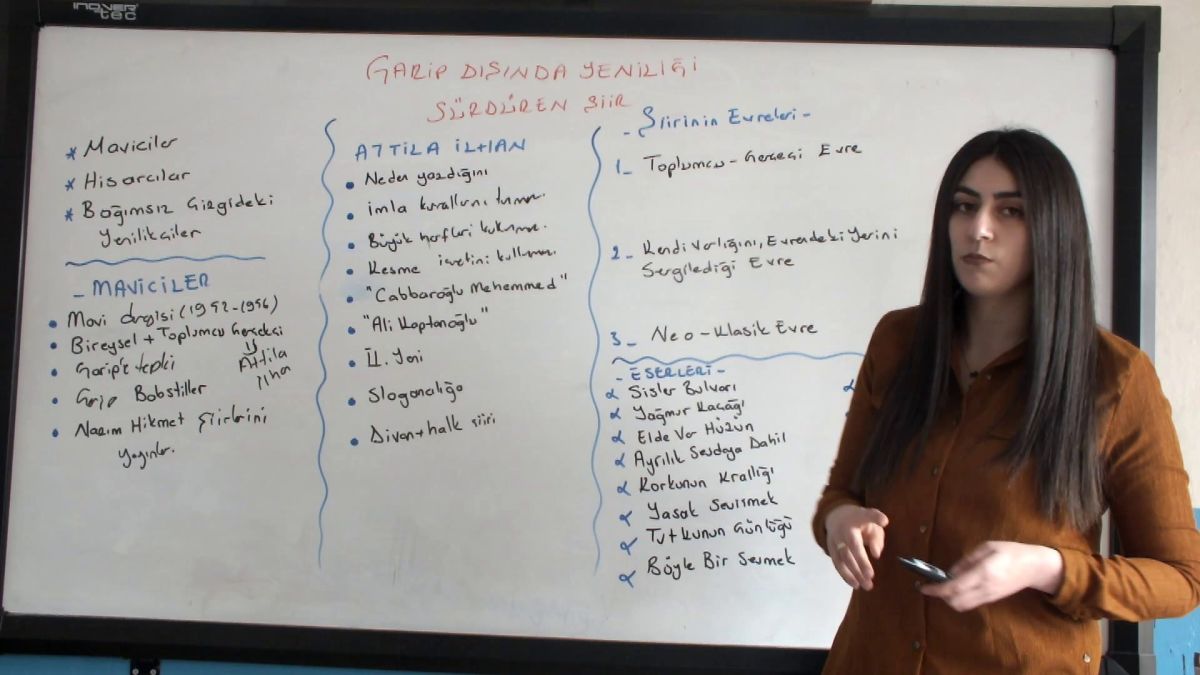 INOVER
tec
GARİP DIŞINDA YENİLİĞİ
SÜRDÜREN ŞİİR
* Maviciler
* Hisarcılar
* Bağımsız Çizgideki
Yenilikçiler
- MAVİCİLER
• Mavi dergisi (1952-1956)
• Bireysel + Toplumcu Gerçekçi
Attila
İlhan
• Garip'e tepki
• Garip Bobstiller
• Nazım Hikmet Şiirlerini
yayınlar.
ATTİLA İLHAN
• Neden yazdığını
• İmla kurallarını
• Büyük harfleri
• Kesme işaretini
• "Cabbaroğlu Mehemmed"
• "Ali Kaptanoğlu"
• II. Yeni
• Sloganlığa
• Divan + halk şiiri
- Şiirinin Evreleri -
1- Toplumcu - Gerçekçi Evre
2- Kendi Varlığını, Evrendeki Yerini
Sergilediği Evre
3- Neo - Klasik Evre
- ESERLERİ -
α Sisler Bulvarı
α Yağmur Kaçağı
α Elde Var Hüzün
α Ayrılık Sevdaya Dahil
α Korkunun Krallığı
α Yasak Sevişmek
α Tutkunun Günlüğü
α Böyle Bir Sevmek